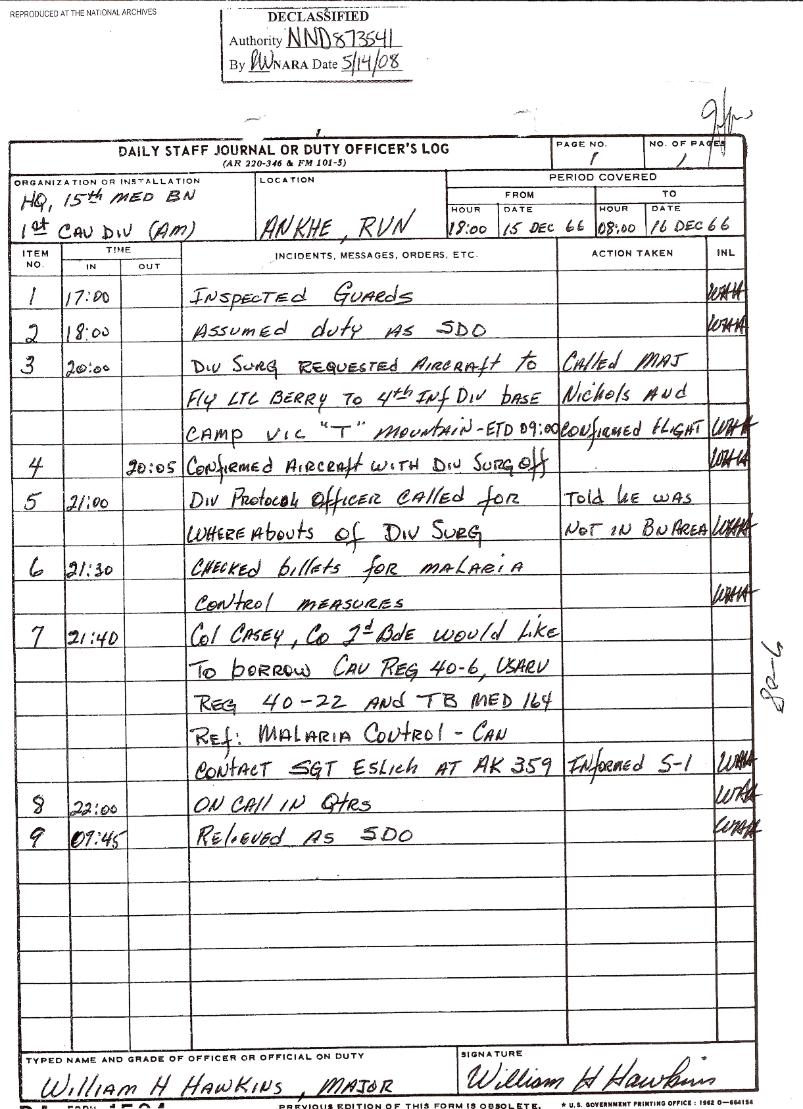 REPRODUCED AT THE NATIONAL ARCHIVES
DECLASSIFIED
Authority NND873541
By NARA Date 5/14/08
DAILY STAFF JOURNAL OR DUTY OFFICER'S LOG
(AR 220-346 & FM 101-5)
PAGE NO.
1
NO. OF PAGES
1
ORGANIZATION OR INSTALLATION
HQ, 15th MED BN
1st CAV DIV (AM)
LOCATION
ANKHE, RVN
PERIOD COVERED
FROM
TO
HOUR DATE HOUR DATE
18:00 15 DEC 66 08:00 16 DEC 66
ITEM NO.
TIME
IN OUT
INCIDENTS, MESSAGES, ORDERS, ETC.
ACTION TAKEN
INL
1 17:00 INSPECTED GUARDS WHH
2 18:00 ASSUMED duty AS SDO WHH
3 20:00 DIV SURG REQUESTED AIRCRAFT to CALLED MAJ
Fly LTC BERRY TO 4th INF DIV bASE Nichols AND
CAMP VIC "T" MOUNTAIN - ETD 09:00 CONFIRMED FLIGHT WHH
4 20:05 CONFIRMED AIRCRAFT WITH DIV SURG OFF WHH
5 21:00 DIV PROTOCOL OFFICER CALLED for Told he WAS
WHERE Abouts of DIV SURG NOT IN BN AREA WHH
6 21:30 CHECKED billets for MALARIA
CONTROL MEASURES WHH
7 21:40 Col CASEY, CO 2d Bde would like
To borrow CAV REG 40-6, USARV
REG 40-22 AND TB MED 164
Ref: MALARIA CONTROL - CAN
CONTACT SGT Eslich AT AK 359 INFORMED S-1 WHH
8 22:00 ON CALL IN QTRS WHH
9 07:45 RELIEVED AS SDO WHH
TYPED NAME AND GRADE OF OFFICER OR OFFICIAL ON DUTY
WILLIAM H HAWKINS, MAJOR
SIGNATURE
William H Hawkins
PREVIOUS EDITION OF THIS FORM IS OBSOLETE.
* U.S. GOVERNMENT PRINTING OFFICE : 1962 O-664154